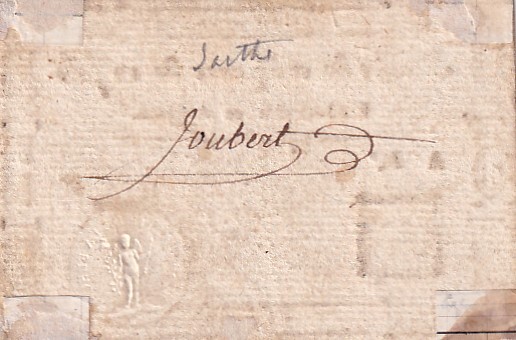 Sarthe
Joubert